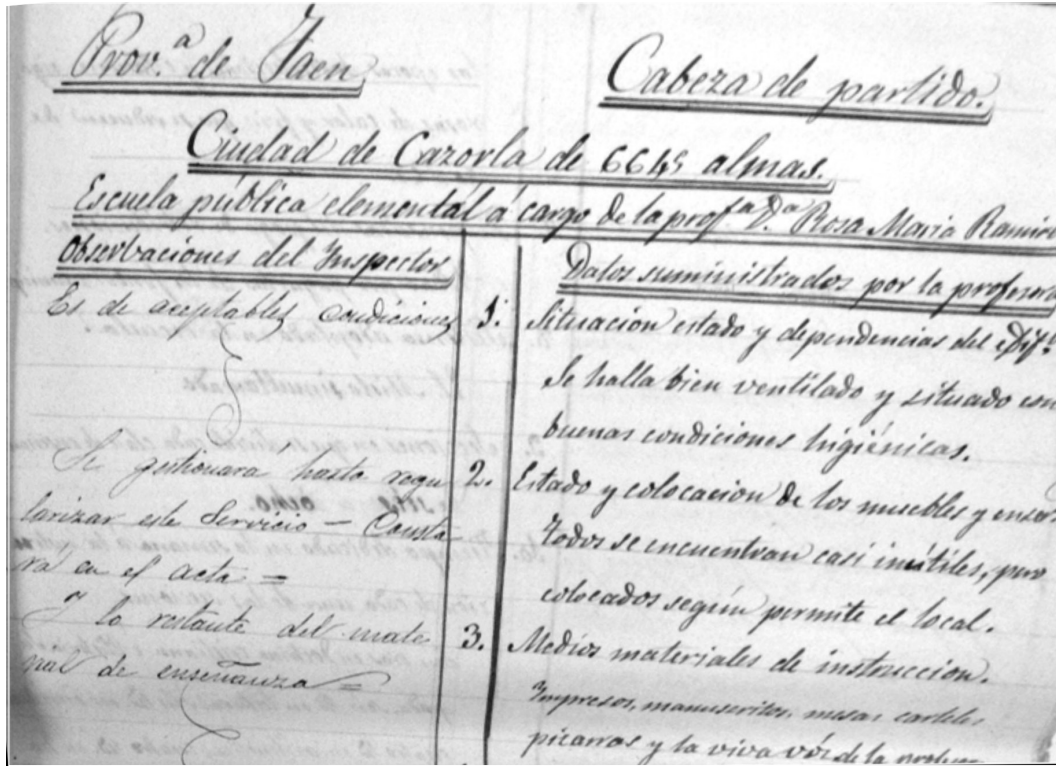 Prov.ª de Jaen
Cabeza de partido.
Ciudad de Cazorla de 6645 almas.
Escuela pública elemental á cargo de la prof.ª D.ª Rosa Maria Ramire
Observaciones del Inspector
Es de aceptables condiciones
Se gestionara hasta regu
larizar este Servicio — Consta
ra en el acta =
Y lo restante del mate
rial de enseñanza =
Datos suministrados por la profesora
1. Situacion estado y dependencias del edif.º
Se halla bien ventilado y situado con
buenas condiciones higiénicas.
2. Estado y colocacion de los muebles y enser
Todos se encuentran casi inútiles, pero
colocados según permite el local.
3. Medios materiales de instruccion.
Impresos, manuscritos, mesas carteles
picarras y la viva vóz de la